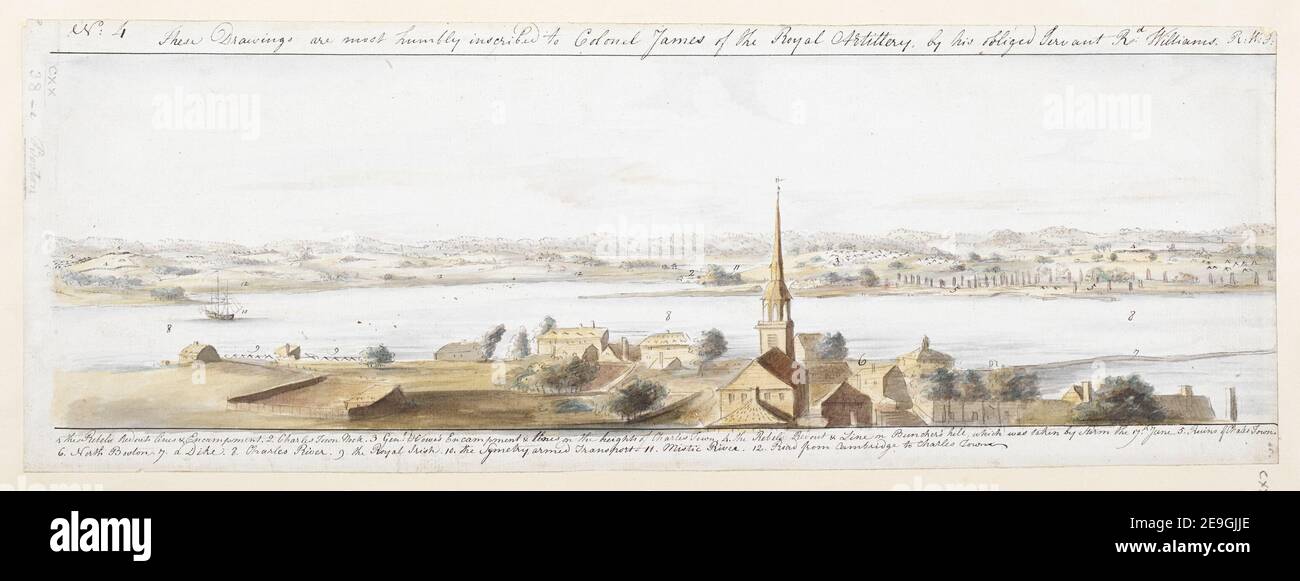 No: 4 These Drawings are most humbly inscribed to Colonel James of the Royal Artillery, by his obliged Servant Rd Williams. R:W:F:
CXX
38-e Boston
alamy
alamy
alamy
a
a
2
11
3
12
10
5
5
8
8
8
9
9
6
7
the Rebels Redout Lines & Encampment. 2. Charles Town Neck. 3 Genl. Howe's Encampment & lines on the heights of Charles Town. 4. the Rebels Redout & Line on Buncher's hill, which was taken by storm the 17th June. 5. Ruins of Town.
6. North Boston. 7. a Dike. 8. Charles River. 9 the Royal Irish. 10. the Symetry armed Transport. 11. Mistic River. 12. Road from Cambridge to Charles Town
alamy
Image ID: 2E9GJJE
www.alamy.com